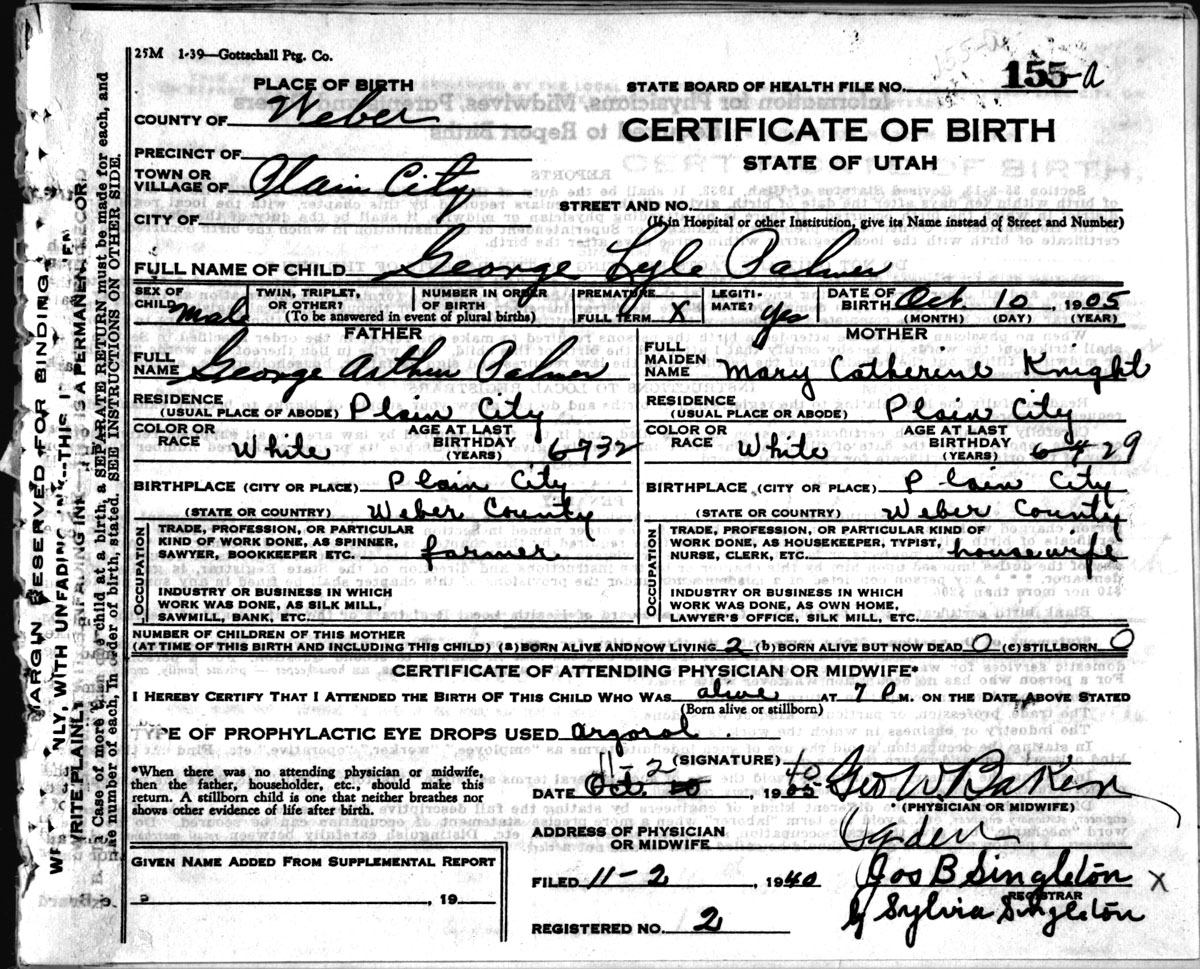 25M 1-39—Gottschall Ptg. Co.
155-a
PLACE OF BIRTH
STATE BOARD OF HEALTH FILE NO. 155-a
COUNTY OF Weber
CERTIFICATE OF BIRTH
PRECINCT OF
STATE OF UTAH
TOWN OR VILLAGE OF Plain City
STREET AND NO.
CITY OF
(If in Hospital or other Institution, give its Name instead of Street and Number)
FULL NAME OF CHILD George Lyle Palmer
SEX OF CHILD Male
TWIN, TRIPLET, OR OTHER?
NUMBER IN ORDER OF BIRTH
(To be answered in event of plural births)
PREMATURE
FULL TERM X
LEGITI-MATE? Yes
DATE OF BIRTH Oct. 10, 1905
(MONTH) (DAY) (YEAR)
FATHER
FULL NAME George Arthur Palmer
RESIDENCE (USUAL PLACE OF ABODE) Plain City
COLOR OR RACE White
AGE AT LAST BIRTHDAY (YEARS) 6-7 32
BIRTHPLACE (CITY OR PLACE) Plain City
(STATE OR COUNTRY) Weber County
OCCUPATION
TRADE, PROFESSION, OR PARTICULAR KIND OF WORK DONE, AS SPINNER, SAWYER, BOOKKEEPER ETC. farmer
INDUSTRY OR BUSINESS IN WHICH WORK WAS DONE, AS SILK MILL, SAWMILL, BANK, ETC.
MOTHER
FULL MAIDEN NAME Mary Catherine Knight
RESIDENCE (USUAL PLACE OR ABODE) Plain City
COLOR OR RACE White
AGE AT LAST BIRTHDAY (YEARS) 6-4 29
BIRTHPLACE (CITY OR PLACE) Plain City
(STATE OR COUNTRY) Weber County
OCCUPATION
TRADE, PROFESSION, OR PARTICULAR KIND OF WORK DONE, AS HOUSEKEEPER, TYPIST, NURSE, CLERK, ETC. housewife
INDUSTRY OR BUSINESS IN WHICH WORK WAS DONE, AS OWN HOME, LAWYER'S OFFICE, SILK MILL, ETC.
NUMBER OF CHILDREN OF THIS MOTHER
(AT TIME OF THIS BIRTH AND INCLUDING THIS CHILD) (a) BORN ALIVE AND NOW LIVING 2 (b) BORN ALIVE BUT NOW DEAD 0 (c) STILLBORN 0
CERTIFICATE OF ATTENDING PHYSICIAN OR MIDWIFE*
I HEREBY CERTIFY THAT I ATTENDED THE BIRTH OF THIS CHILD WHO WAS alive AT 7 P M. ON THE DATE ABOVE STATED
(Born alive or stillborn)
TYPE OF PROPHYLACTIC EYE DROPS USED argorol.
*When there was no attending physician or midwife, then the father, householder, etc., should make this return. A stillborn child is one that neither breathes nor shows other evidence of life after birth.
(SIGNATURE) Geo W Baker
11-2 40
DATE Oct. 10, 1905
(PHYSICIAN OR MIDWIFE)
ADDRESS OF PHYSICIAN OR MIDWIFE Ogden
GIVEN NAME ADDED FROM SUPPLEMENTAL REPORT
, 19
FILED 11-2, 1940 Jos B Singleton X
REGISTRAR
REGISTERED NO. 2 by Sylvia Singleton
MARGIN RESERVED FOR BINDING
WRITE PLAINLY, WITH UNFADING INK--THIS IS A PERMANENT RECORD
In Case of more than one child at a birth, a SEPARATE RETURN must be made for each, and the number of each, in order of birth, stated. SEE INSTRUCTIONS ON OTHER SIDE.